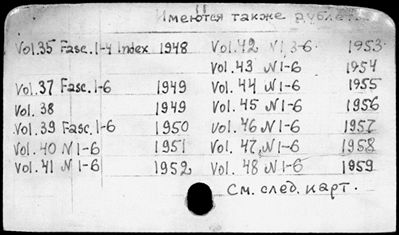 Имеются также дублет.
Vol.35 Fasc.1-4 Index 1948
Vol.37 Fasc.1-6 1949
Vol.38 1949
Vol.39 Fasc.1-6 1950
Vol.40 N1-6 1951
Vol.41 N1-6 1952
Vol.42 N1 3-6 1953
Vol.43 N1-6 1954
Vol.44 N1-6 1955
Vol.45 N1-6 1956
Vol.46 N1-6 1957
Vol.47 N1-6 1958
Vol.48 N1-6 1959
См. след. карт.